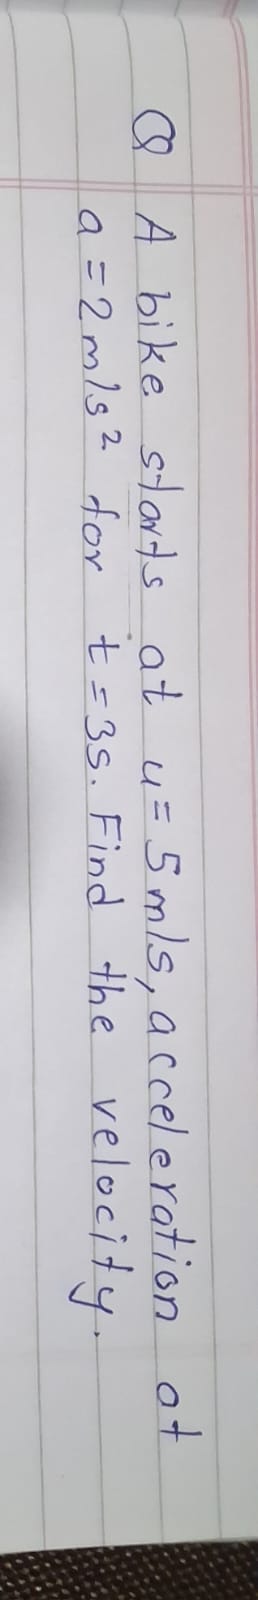 Q A bike starts at u = 5 m/s, acceleration at
a = 2 m/s² for t = 3s. Find the velocity.